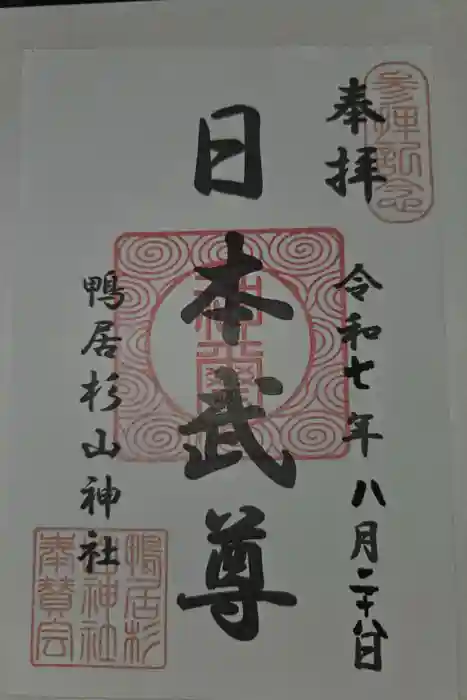 奉拝
参拝記念
令和七年八月二十八日
日本武尊
鴨居杉山神社
鴨居杉
神社
奉賛会